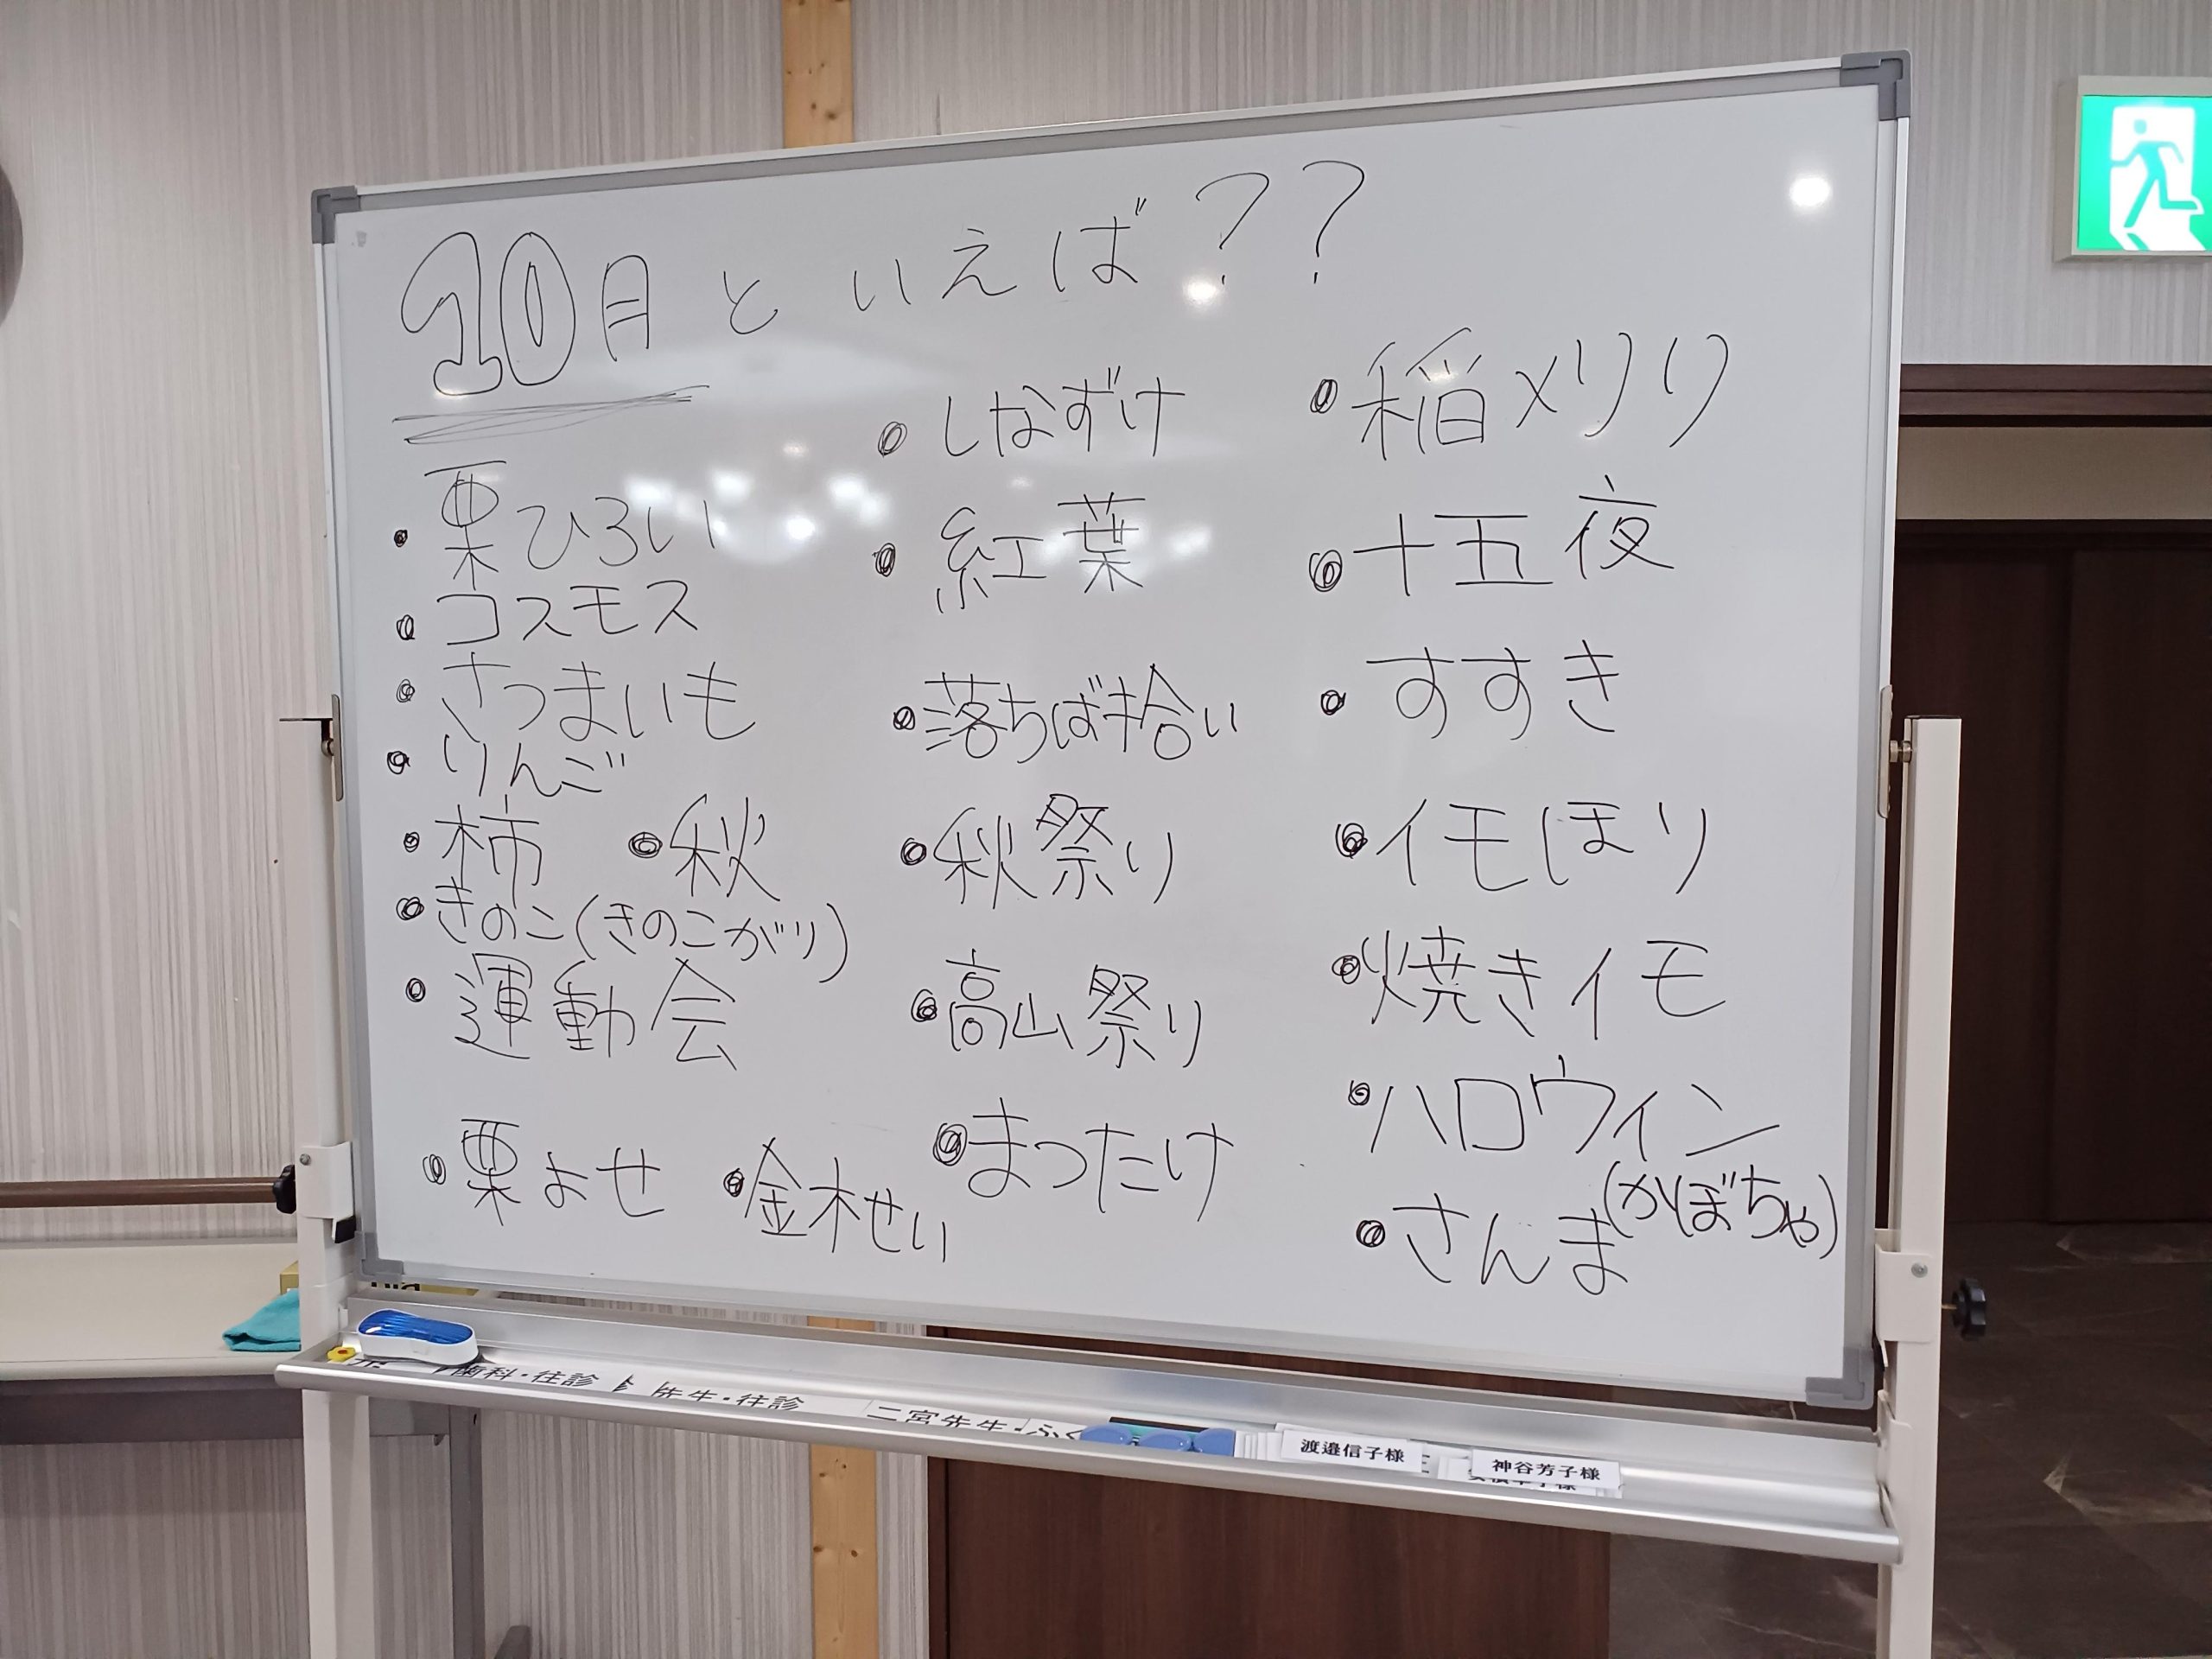 10月といえば??
・栗ひろい
・コスモス
・さつまいも
・りんご
・柿 ・秋
・きのこ(きのこがり)
・運動会
・栗よせ ・金木せい
・しなずけ
・紅葉
・落ちば拾い
・秋祭り
・高山祭り
・まつたけ
・稲刈り
・十五夜
・すすき
・イモほり
・焼きイモ
・ハロウィン
(かぼちゃ)
・さんま
歯科・往診
先生・往診
二宮先生・ふく
渡邉信子様
神谷芳子様